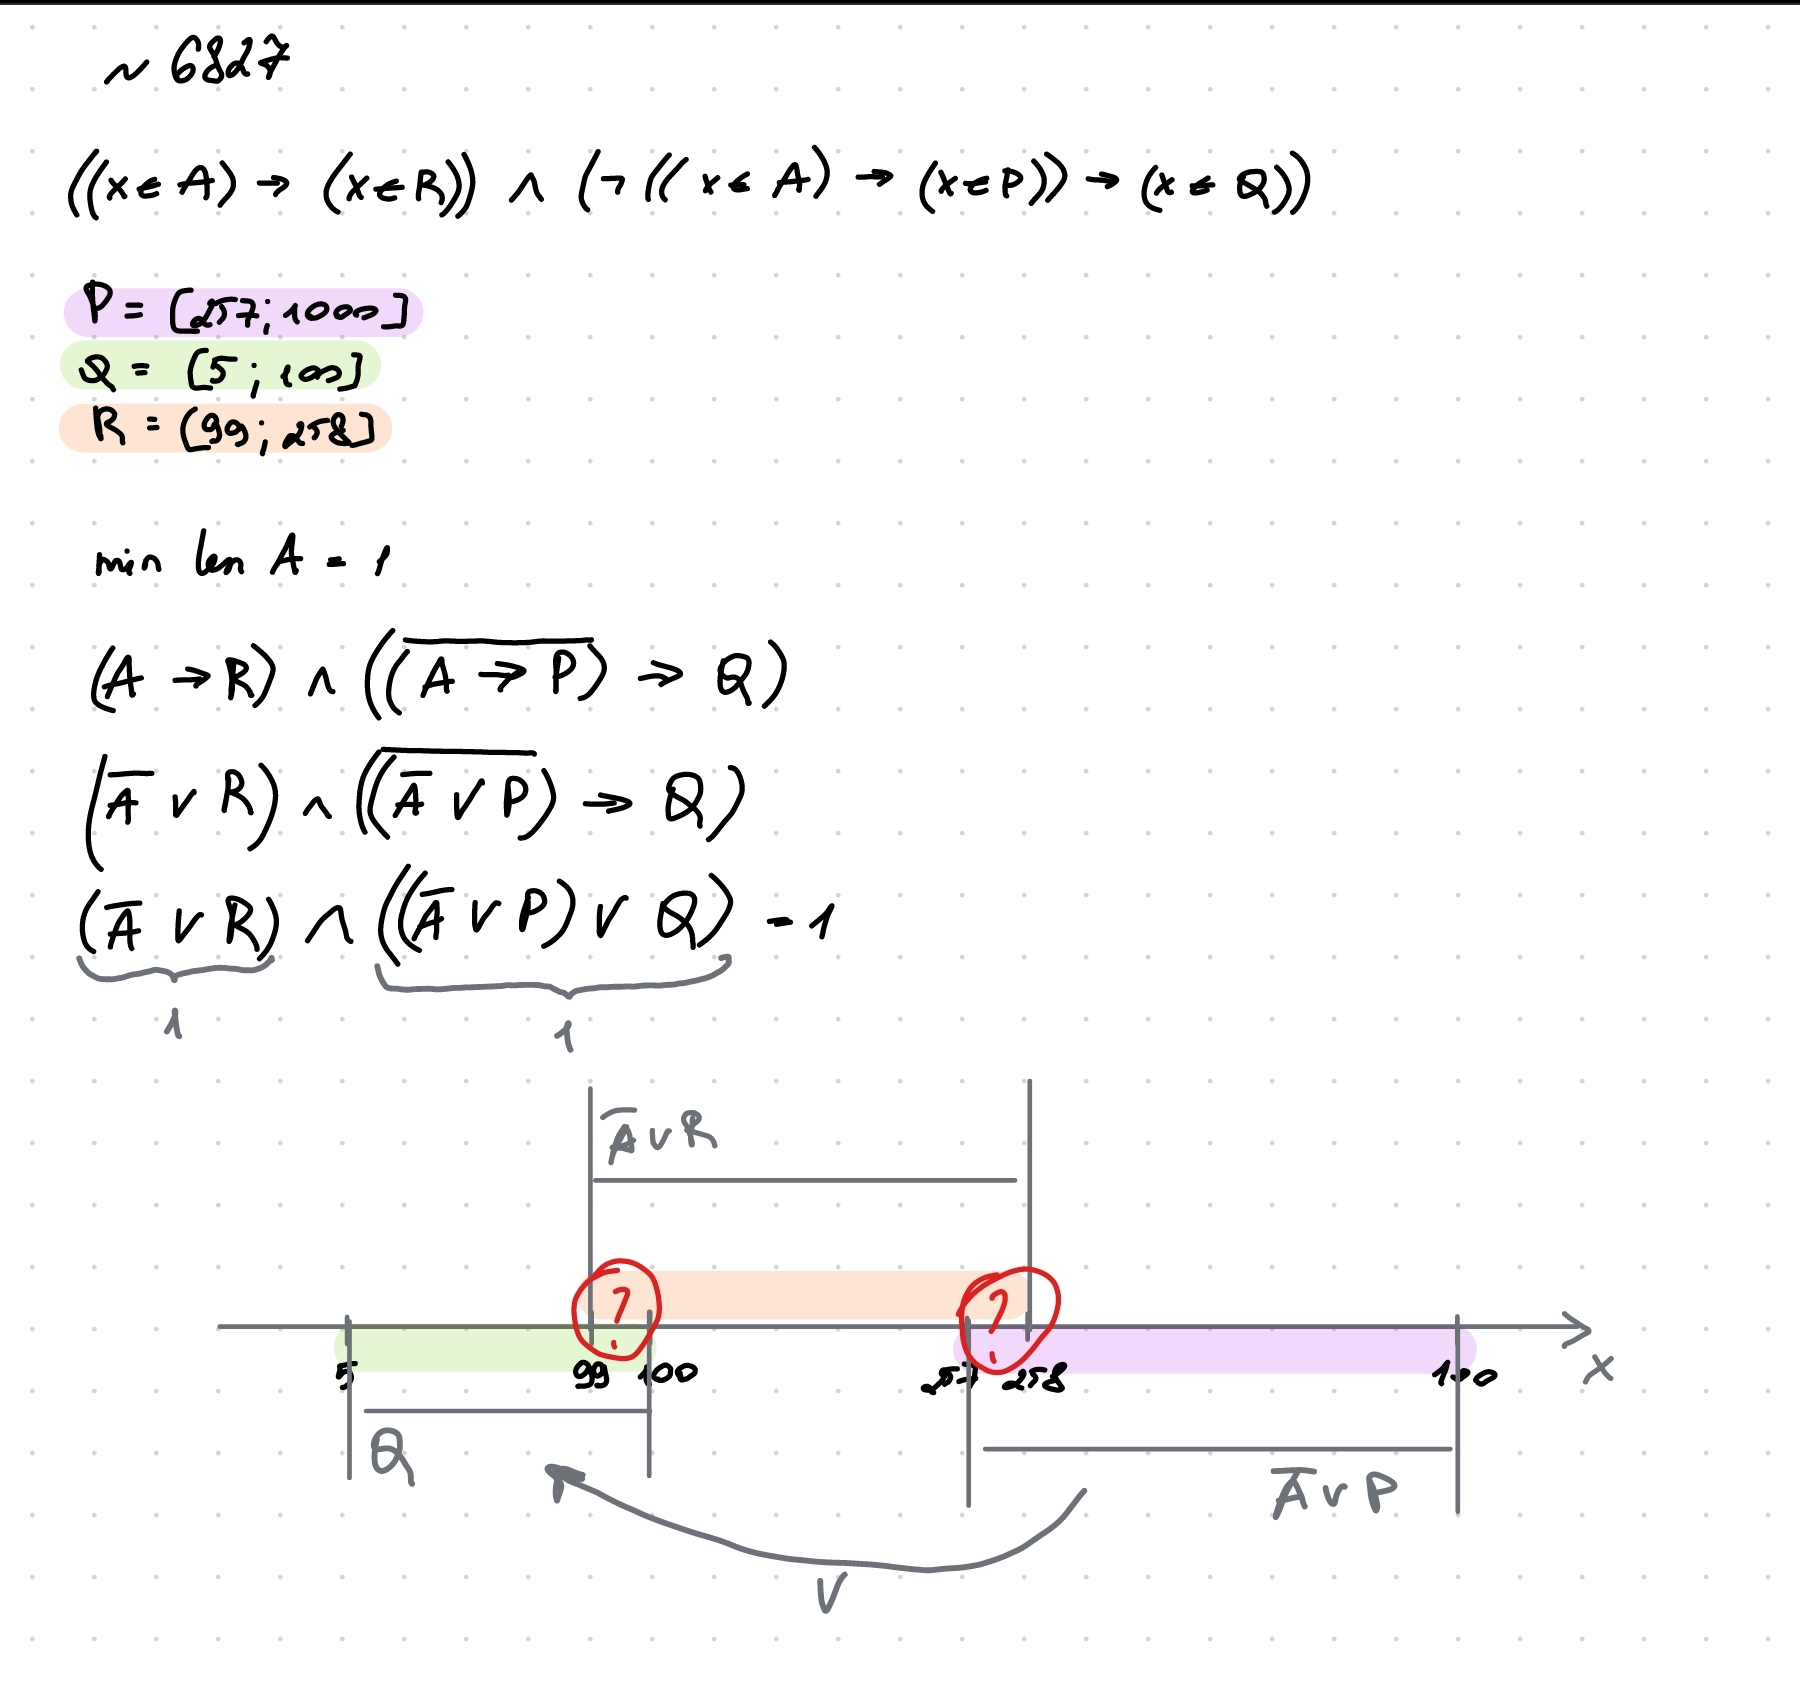 ~ 6827
((x ∈ A) → (x ∈ R)) ∧ (¬((x ∈ A) → (x ∈ P)) → (x ∈ Q))
P = [257; 1000]
Q = [5; 100]
R = [99; 258]
min len A = 1
(A → R) ∧ ((\overline{A → P}) → Q)
(\overline{A} ∨ R) ∧ ((\overline{\overline{A} ∨ P}) → Q)
(\overline{A} ∨ R) ∧ ((\overline{A} ∨ P) ∨ Q) = 1
1 1
\overline{A} ∨ R
? ?
5 99 100 257 258 100 x
Q \overline{A} ∨ P
∨